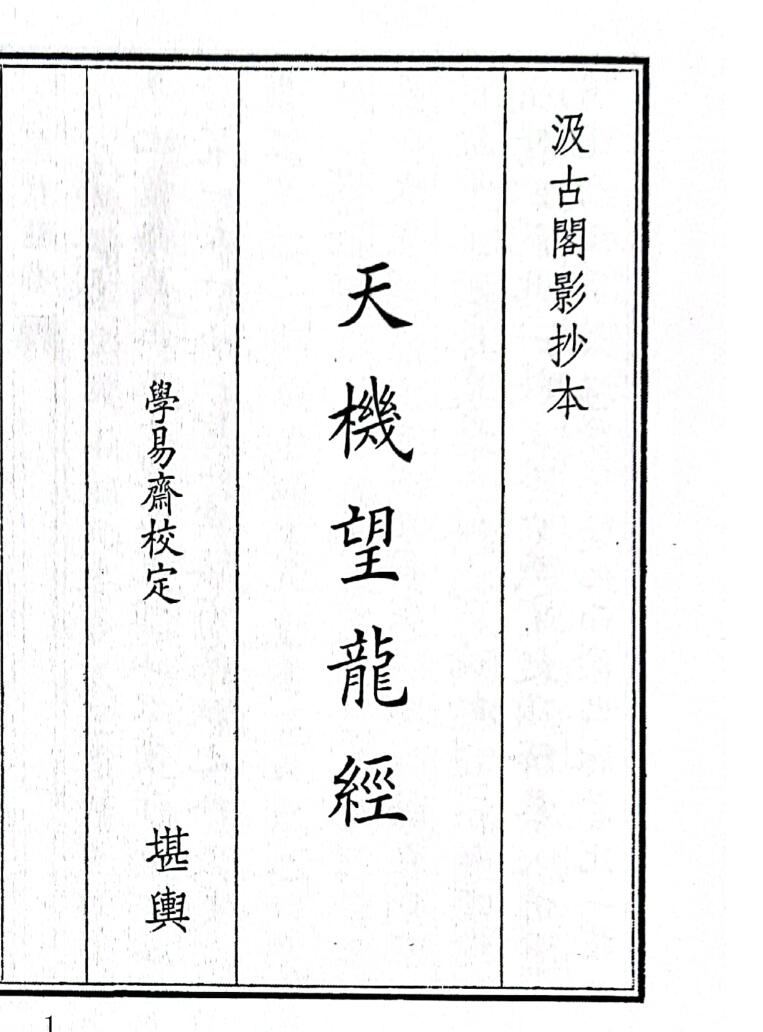 汲古閣影抄本
天機望龍經
學易齋校定 堪輿
1